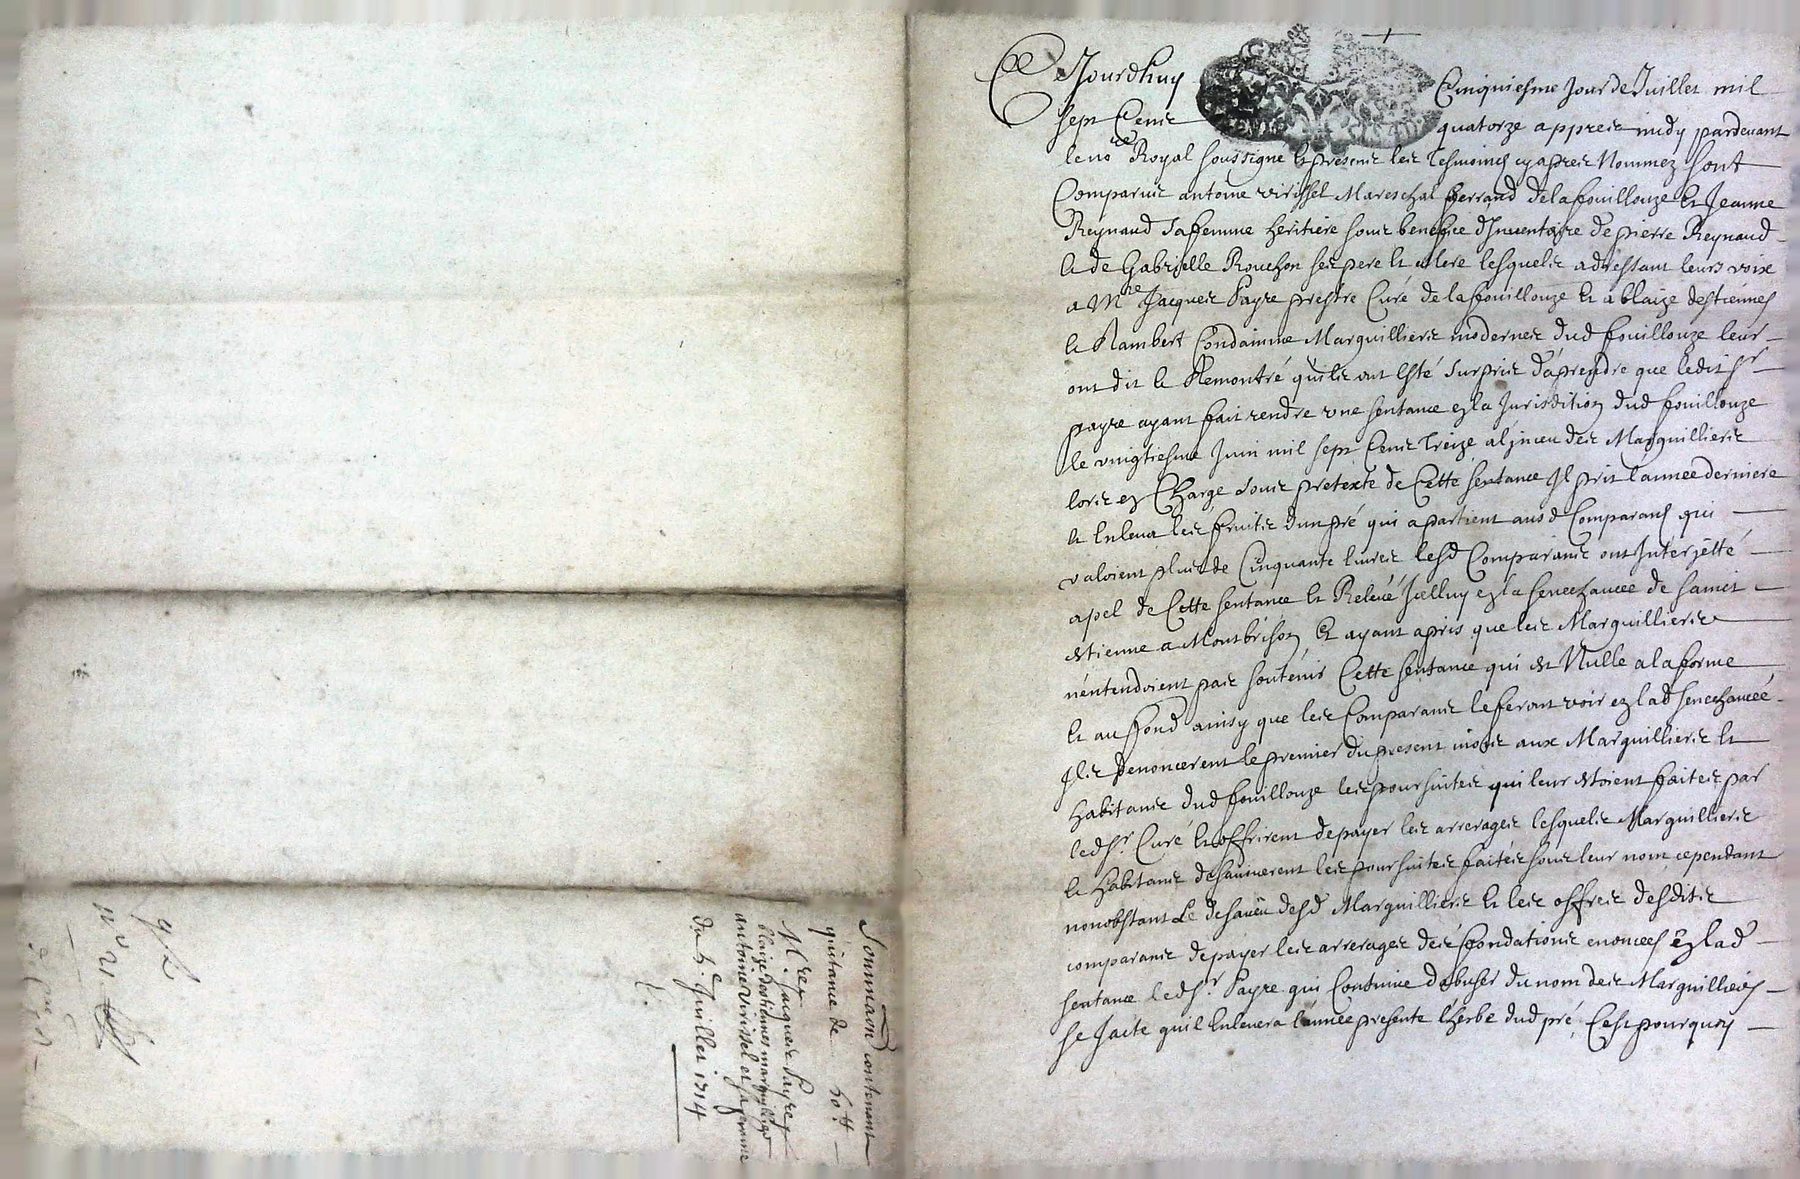 Ce Jourdhuy Cinquiesme Jour de Juillet mil
sept Cens quatorze appres midy pardevant
le no.re Royal soussigne Et presents les Tesmoins cy apres Nommez sont
Comparus antoine virissel Mareschal ferrand de la fouillouze Et Jeanne
Reynaud sa femme heritiere sous benefice d'Inventaire de pierre Reynaud
Et de Gabrielle Rouchon ses pere Et Mere lesquels adressant leurs voix
a M.re Jacques Payre prestre Curé de la fouillouze Et a blaize destiennes
Et Rambert Condamine Marguilliers modernes dud fouillouze leur
ont dit Et Remontré quils ont Esté surpris d'aprendre que ledit Sr
payre ayant fait rendre une sentance ez la Jurisdition dud fouillouze
le vingtiesme Juin mil sept Cens Treize au des Marguilliers
lors ez Charge sous pretexte de Cette sentance Il prit l'année derniere
Et Enleva les fruits dun pré qui apartient ausd Comparans qui
valoient plus de Cinquante livres lesd Comparans ont Interjetté
apel de Cette sentance Et Relevé Icelluy ez la senechaucée de sainct
Estienne a Montbrison Et ayant apris que les Marguilliers
n'entendoient pas soutenir Cette sentance qui Est Nulle a la forme
Et au fond ainsy que les Comparans le feront voir ez lad senechaucée
Ils denoncerent le premier du present mois aux Marguilliers Et
habitans dud fouillouze les poursuites qui leur Estoient faites par
led Sr. Curé Et offrirent de payer les arrerages lesquels Marguilliers
Et habitans desavuerent les poursuites faites sous leur nom cependant
nonobstant Le desaveu desd Marguilliers Et les offres desdits
comparans de payer les arrerages des fondations enoncees Ez lad
sentance led Sr. Payre qui Continue d'abuser du nom des Marguilliers
se Jacte quil Enlevera l'année presente l'herbe dud pré Cest pourquoy
Sommaon contenant
quitance de 50tt
M.re Jacques Payre
blaize destiennes marguillier
antoine virissel et sa femme
du 5.e Juillet 1714